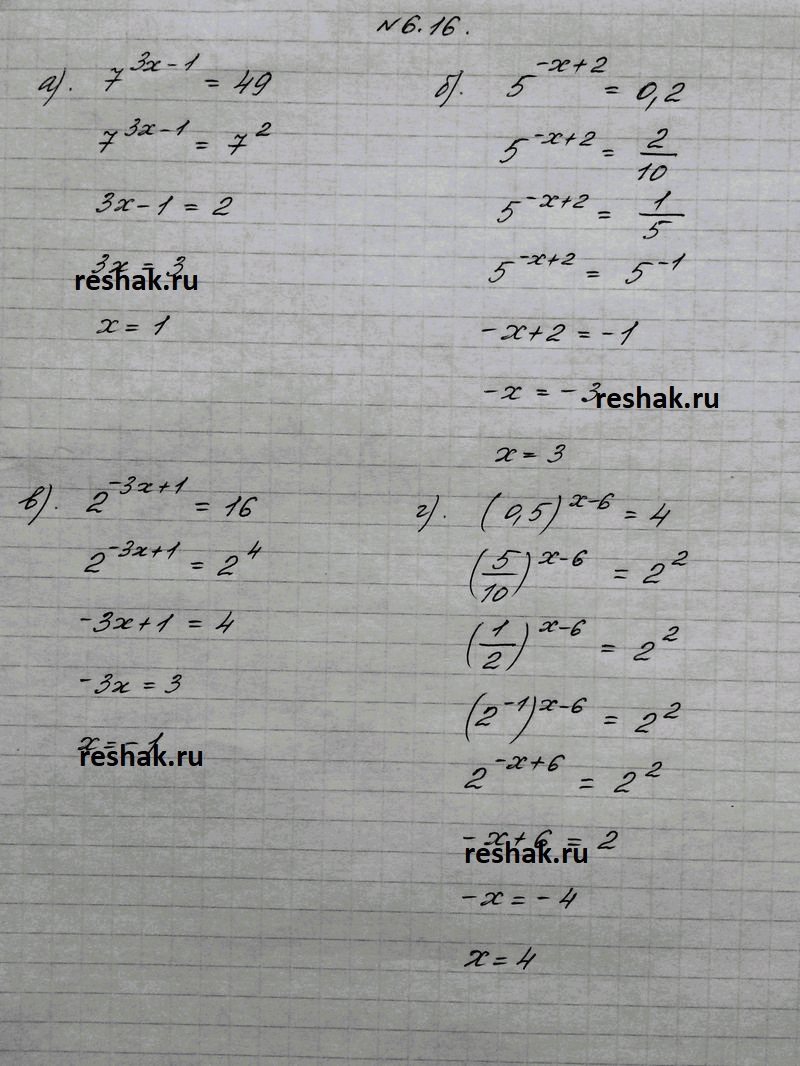 №6.16.
а). 7^{3x-1} = 49
7^{3x-1} = 7^2
3x-1 = 2
3x = 3
reshak.ru
x = 1
б). 5^{-x+2} = 0,2
5^{-x+2} = \frac{2}{10}
5^{-x+2} = \frac{1}{5}
5^{-x+2} = 5^{-1}
-x+2 = -1
-x = -3
reshak.ru
x = 3
в). 2^{-3x+1} = 16
2^{-3x+1} = 2^4
-3x+1 = 4
-3x = 3
x = -1
reshak.ru
г). (0,5)^{x-6} = 4
(\frac{5}{10})^{x-6} = 2^2
(\frac{1}{2})^{x-6} = 2^2
(2^{-1})^{x-6} = 2^2
2^{-x+6} = 2^2
-x+6 = 2
reshak.ru
-x = -4
x = 4